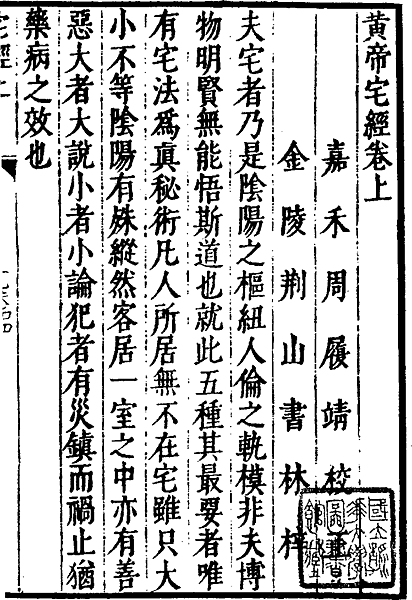 黄帝宅經卷上
嘉禾周履靖校
金陵荆山書林梓
夫宅者乃是隂陽之樞紐人倫之軌模非夫博
物明賢無能悟斯道也就此五種其最要者唯
有宅法爲眞秘術凡人所居無不在宅雖只大
小不等隂陽有殊縱然客居一室之中亦有善
惡大者大說小者小論犯者有災鎮而禍止猶
藥病之效也